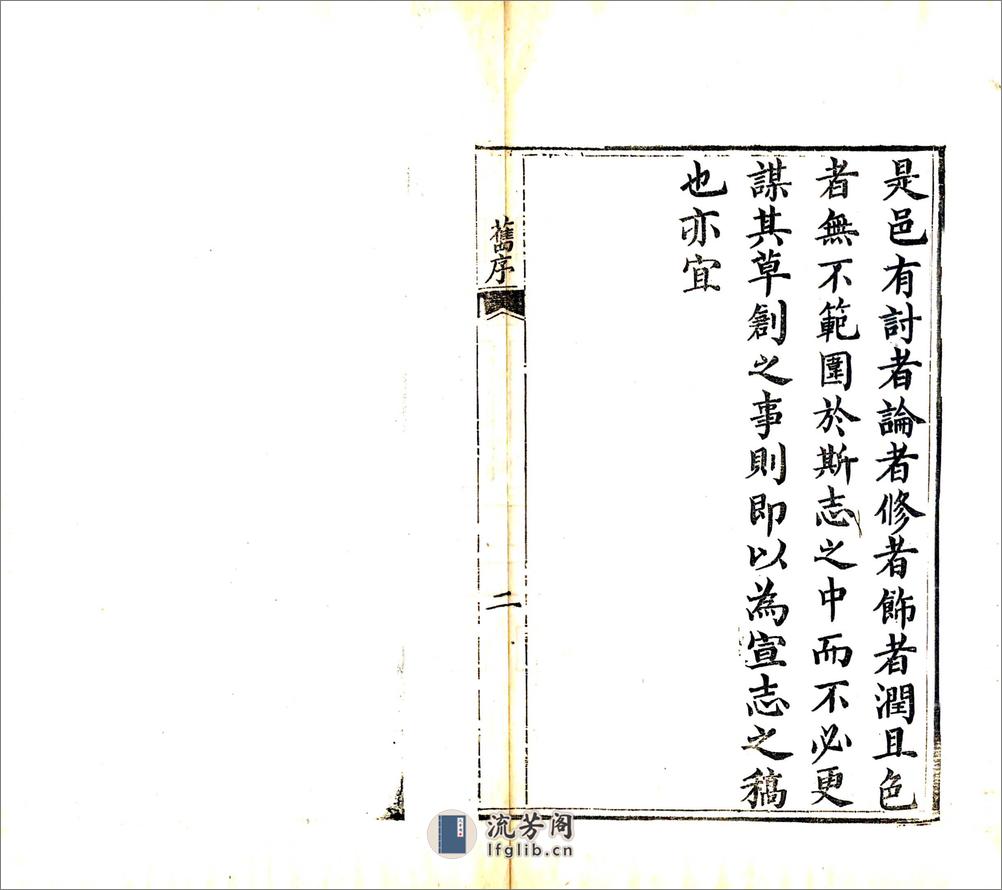 是邑有討者論者修者飾者潤且色
者無不範圍於斯志之中而不必更
謀其草創之事則即以為宣志之稿
也亦宜
舊序
二
流芳阁
lfglib.cn